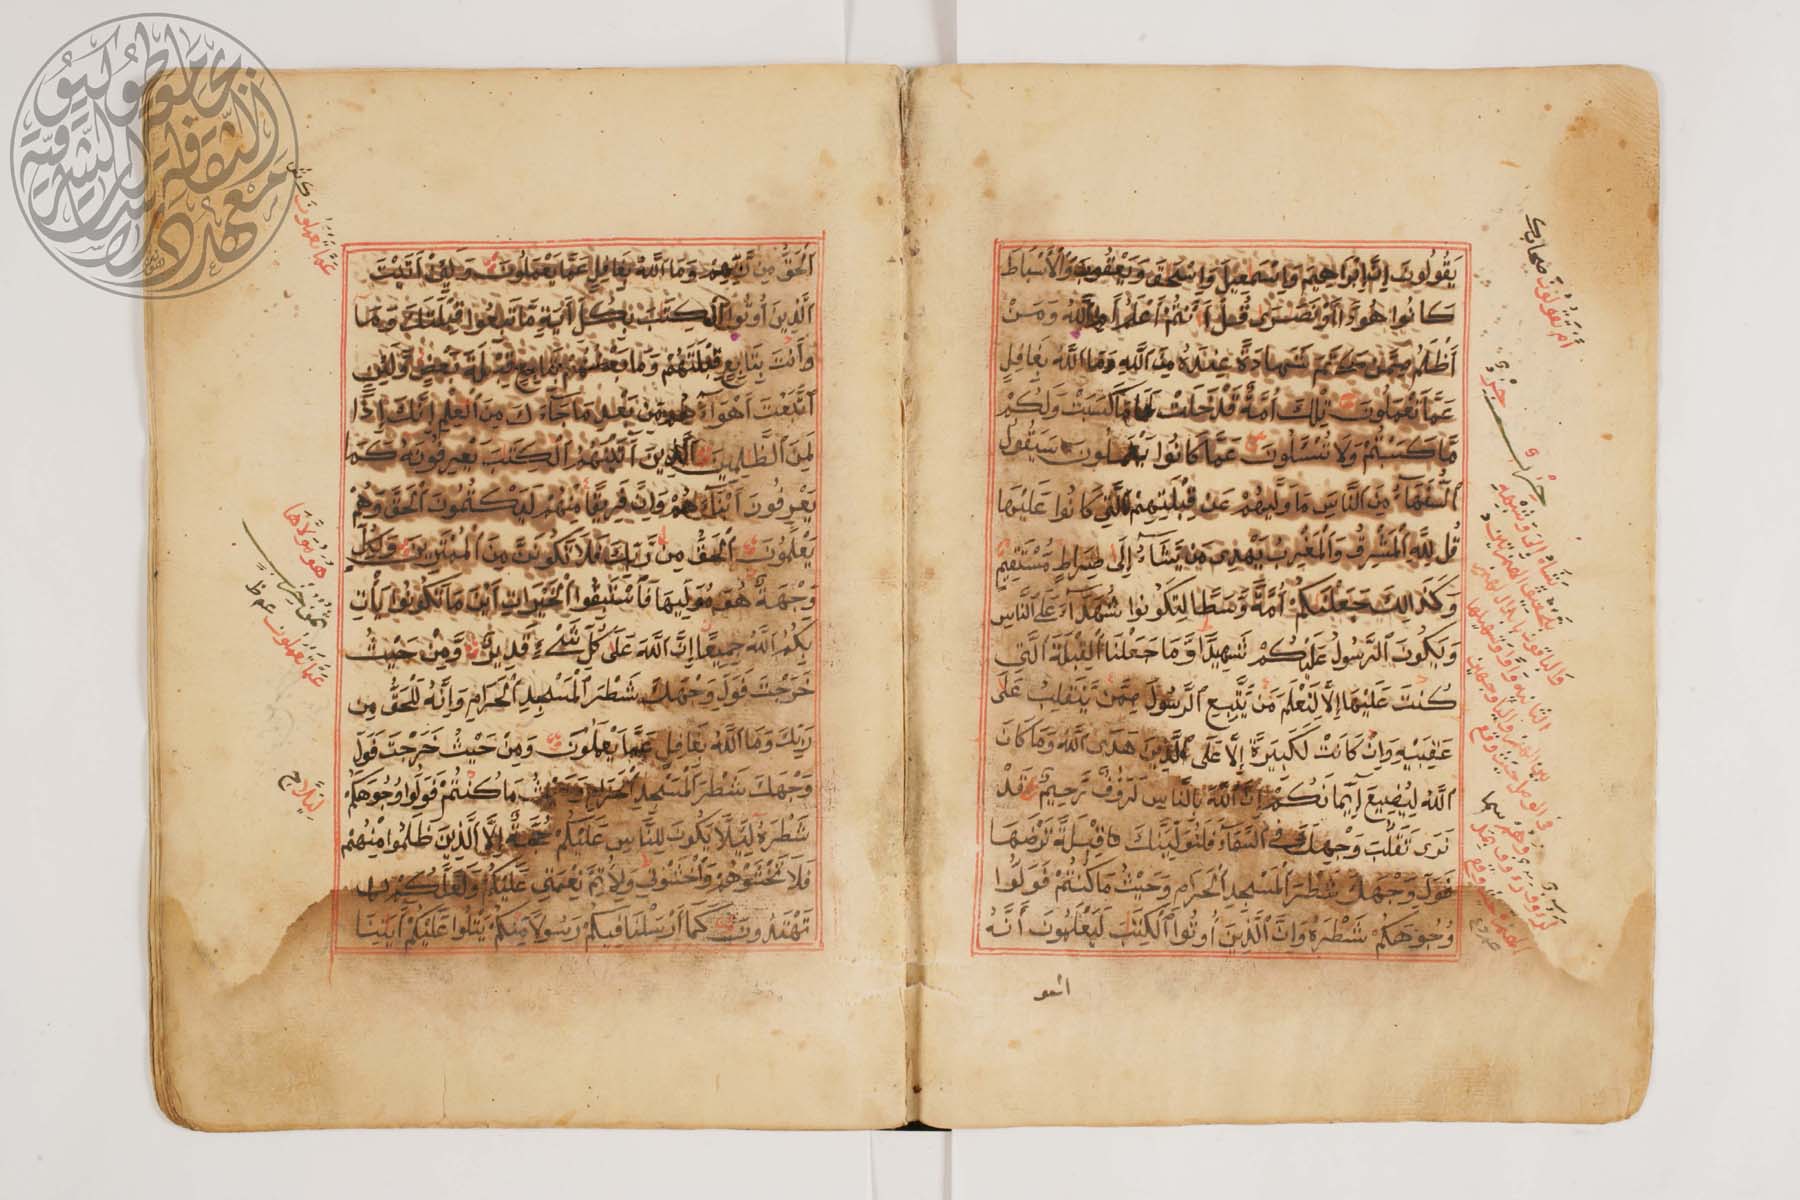 يَقُولُونَ إِنَّ إِبْرَاهِيمَ وَإِسْمَعِيلَ وَإِسْحَقَ وَيَعْقُوبَ وَالْأَسْبَاطَ
كَانُوا هُودًا أَوْ نَصَرَى قُلْ ءَأَنْتُمْ أَعْلَمُ أَمِ اللَّهُ وَمَنْ
أَظْلَمُ مِمَّن كَتَمَ شَهَادَةً عِنْدَهُ مِنَ اللَّهِ وَمَا اللَّهُ بِغَافِلٍ
عَمَّا تَعْمَلُونَ تِلْكَ أُمَّةٌ قَدْ خَلَتْ لَهَا مَا كَسَبَتْ وَلَكُمْ
مَّا كَسَبْتُمْ وَلَا تُسْـَٔلُونَ عَمَّا كَانُوا يَعْمَلُونَ سَيَقُولُ
السُّفَهَاءُ مِنَ النَّاسِ مَا وَلَّيهُمْ عَنْ قِبْلَتِهِمُ الَّتِي كَانُوا عَلَيْهَا
قُل لِلَّهِ الْمَشْرِقُ وَالْمَغْرِبُ يَهْدِي مَن يَشَاءُ إِلَى صِرَاطٍ مُسْتَقِيمٍ
وَكَذَلِكَ جَعَلْنَكُمْ أُمَّةً وَسَطًا لِتَكُونُوا شُهَدَاءَ عَلَى النَّاسِ
وَيَكُونَ الرَّسُولُ عَلَيْكُمْ شَهِيدًا وَمَا جَعَلْنَا الْقِبْلَةَ الَّتِي
كُنتَ عَلَيْهَا إِلَّا لِنَعْلَمَ مَن يَتَّبِعُ الرَّسُولَ مِمَّن يَنقَلِبُ عَلَى
عَقِبَيْهِ وَإِن كَانَتْ لَكَبِيرَةً إِلَّا عَلَى الَّذِينَ هَدَى اللَّهُ وَمَا كَانَ
اللَّهُ لِيُضِيعَ إِيمَانَكُمْ إِنَّ اللَّهَ بِالنَّاسِ لَرَءُوفٌ رَّحِيمٌ قَدْ
نَرَى تَقَلُّبَ وَجْهِكَ فِي السَّمَاءِ فَلَنُوَلِّيَنَّكَ قِبْلَةً تَرْضَىهَا
فَوَلِّ وَجْهَكَ شَطْرَ الْمَسْجِدِ الْحَرَامِ وَحَيْثُ مَا كُنْتُمْ فَوَلُّوا
وُجُوهَكُمْ شَطْرَهُ وَإِنَّ الَّذِينَ أُوتُوا الْكِتَبَ لَيَعْلَمُونَ أَنَّهُ
أَمْ يَقُولُونَ
حزب
الْحَقُّ مِن رَّبِّهِمْ وَمَا اللَّهُ بِغَافِلٍ عَمَّا يَعْمَلُونَ وَلَئِنْ أَتَيْتَ
الَّذِينَ أُوتُوا الْكِتَبَ بِكُلِّ ءَايَةٍ مَا تَبِعُوا قِبْلَتَكَ وَمَا
وأَنتَ بِتَابِعٍ قِبْلَتَهُمْ وَمَا بَعْضُهُمْ بِتَابِعٍ قِبْلَةَ بَعْضٍ وَلَئِنِ
اتَّبَعْتَ أَهْوَاءَهُم مِّن بَعْدِ مَا جَاءَكَ مِنَ الْعِلْمِ إِنَّكَ إِذًا
لَمِنَ الظَّلِمِينَ الَّذِينَ ءَاتَيْنَهُمُ الْكِتَبَ يَعْرِفُونَهُ كَمَا
يَعْرِفُونَ أَبْنَاءَهُمْ وَإِنَّ فَرِيقًا مِنْهُمْ لَيَكْتُمُونَ الْحَقَّ وَهُمْ
يَعْلَمُونَ الْحَقُّ مِن رَّبِّكَ فَلَا تَكُونَنَّ مِنَ الْمُمْتَرِينَ وَلِكُلٍّ
وِجْهَةٌ هُوَ مُوَلِّيهَا فَاسْتَبِقُوا الْخَيْرَاتِ أَيْنَ مَا تَكُونُوا يَأْتِ
بِكُمُ اللَّهُ جَمِيعًا إِنَّ اللَّهَ عَلَى كُلِّ شَيْءٍ قَدِيرٌ وَمِنْ حَيْثُ
خَرَجْتَ فَوَلِّ وَجْهَكَ شَطْرَ الْمَسْجِدِ الْحَرَامِ وَإِنَّهُ لَلْحَقُّ مِن
رَبِّكَ وَمَا اللَّهُ بِغَافِلٍ عَمَّا يَعْمَلُونَ وَمِنْ حَيْثُ خَرَجْتَ فَوَلِّ
وَجْهَكَ شَطْرَ الْمَسْجِدِ الْحَرَامِ وَحَيْثُ مَا كُنْتُمْ فَوَلُّوا وُجُوهَكُمْ
شَطْرَهُ لِيَلَّا يَكُونَ لِلنَّاسِ عَلَيْكُمْ حُجَّةٌ إِلَّا الَّذِينَ ظَلَمُوا مِنْهُمْ
فَلَا تَخْشَوْهُمْ وَاخْشَوْنِي وَلِأُتِمَّ نِعْمَتِي عَلَيْكُمْ وَلَعَلَّكُمْ
تَهْتَدُونَ كَمَا أَرْسَلْنَا فِيكُمْ رَسُولًا مِنْكُمْ يَتْلُوا عَلَيْكُمْ ءَايَتِنَا
عَمَّا يَعْمَلُونَ
هُوَ مُوَلَّاهَا
عَمَّا يَعْمَلُونَ
لِيَلَّا